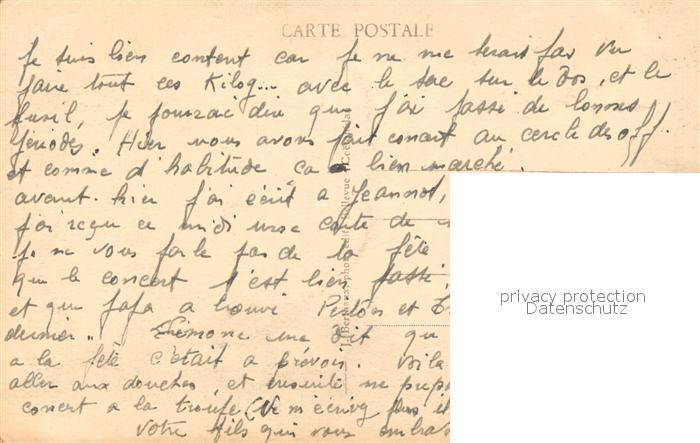 CARTE POSTALE
Je suis bien content car je ne me serais pas vu
faire tout ces Kilog... avec le sac sur le dos, et le
fusil, je pourrai dire que j'ai passé de bonnes
périodes. Hier nous avons fait concert au cercle des off.
et comme d'habitude ca a bien marché.
avant-hier j'ai écrit a Jeannot,
j'ai reçu ce midi une carte de
je ne vous parle pas de la fête
que le concert s'est bien passé,
et que papa a trouvé et
dernier.. Simone me dit qu
a la fête c'était a prévoir. Voila
aller aux douches, et ensuite me prépa
concert a la troupe (Ne m'écrivez plus i
Votre fils qui vous embras
privacy protection
Datenschutz